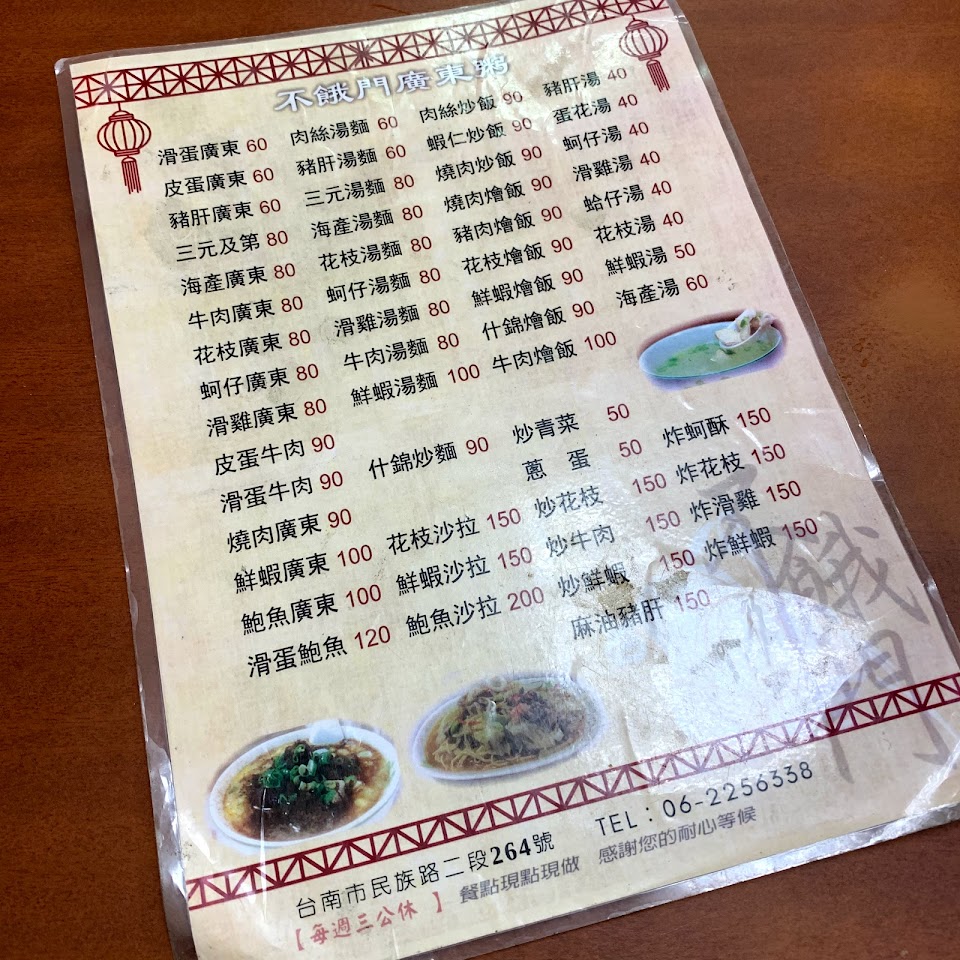 不餓門廣東粥
滑蛋廣東 60
皮蛋廣東 60
豬肝廣東 60
三元及第 80
海產廣東 80
牛肉廣東 80
花枝廣東 80
蚵仔廣東 80
滑雞廣東 80
皮蛋牛肉 90
滑蛋牛肉 90
燒肉廣東 90
鮮蝦廣東 100
鮑魚廣東 100
滑蛋鮑魚 120
肉絲湯麵 60
豬肝湯麵 60
三元湯麵 80
海產湯麵 80
花枝湯麵 80
蚵仔湯麵 80
滑雞湯麵 80
牛肉湯麵 80
鮮蝦湯麵 100
什錦炒麵 90
花枝沙拉 150
鮮蝦沙拉 150
鮑魚沙拉 200
肉絲炒飯 90
蝦仁炒飯 90
燒肉炒飯 90
燒肉燴飯 90
豬肉燴飯 90
花枝燴飯 90
鮮蝦燴飯 90
什錦燴飯 90
牛肉燴飯 100
炒青菜 50
蔥蛋 50
炒花枝 150
炒牛肉 150
炒鮮蝦 150
麻油豬肝 150
豬肝湯 40
蛋花湯 40
蚵仔湯 40
滑雞湯 40
蛤仔湯 40
花枝湯 40
鮮蝦湯 50
海產湯 60
炸蚵酥 150
炸花枝 150
炸滑雞 150
炸鮮蝦 150
不餓門
台南市民族路二段264號 TEL：06-2256338
【每週三公休 】 餐點現點現做 感謝您的耐心等候